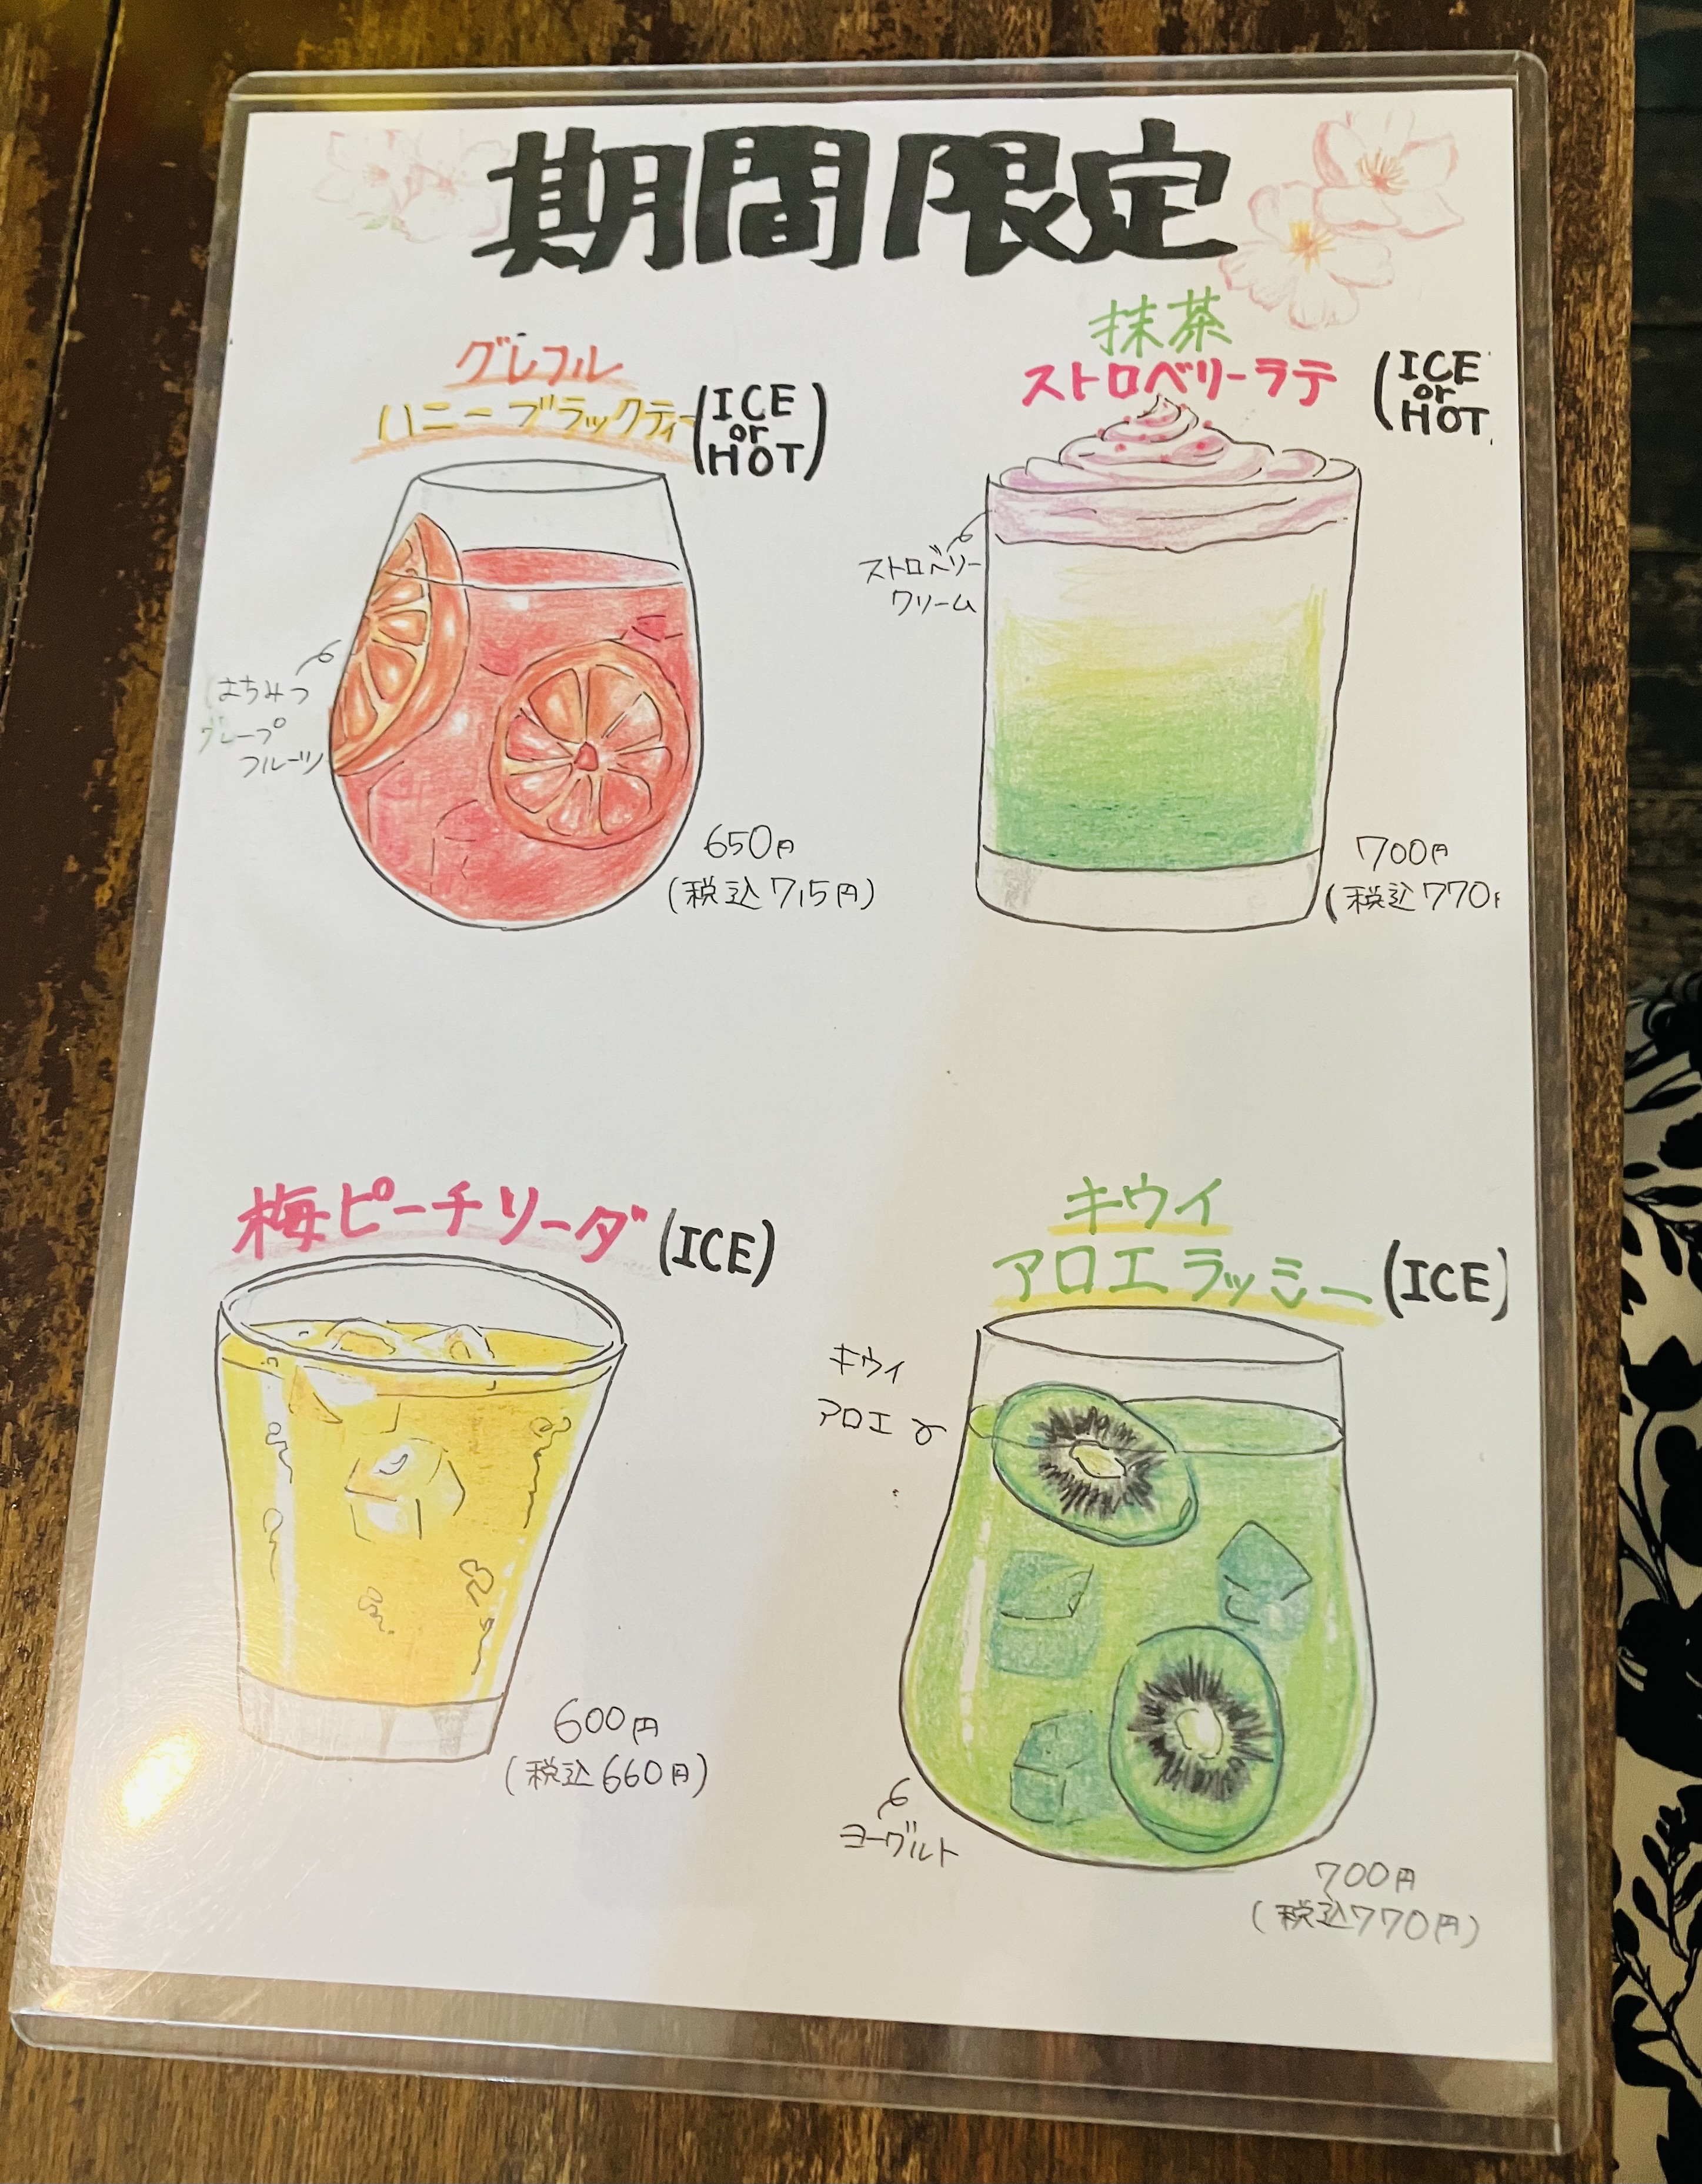 期間限定
グレフル
ハニーブラックティー
(ICE
or
HOT)
はちみつ
グレープ
フルーツ
650円
(税込715円)
抹茶
ストロベリーラテ
(ICE
or
HOT
ストロベリー
クリーム
700円
(税込770
梅ピーチソーダ (ICE)
600円
(税込660円)
キウイ
アロエラッシー (ICE)
キウイ
アロエ
ヨーグルト
700円
(税込770円)